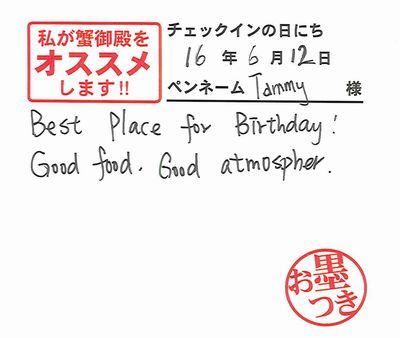 私が蟹御殿を
オススメ
します!!
チェックインの日にち
16 年 6 月 12 日
ペンネーム Tammy 様
Best Place for Birthday!
Good food. Good atmospher.
お墨
つき